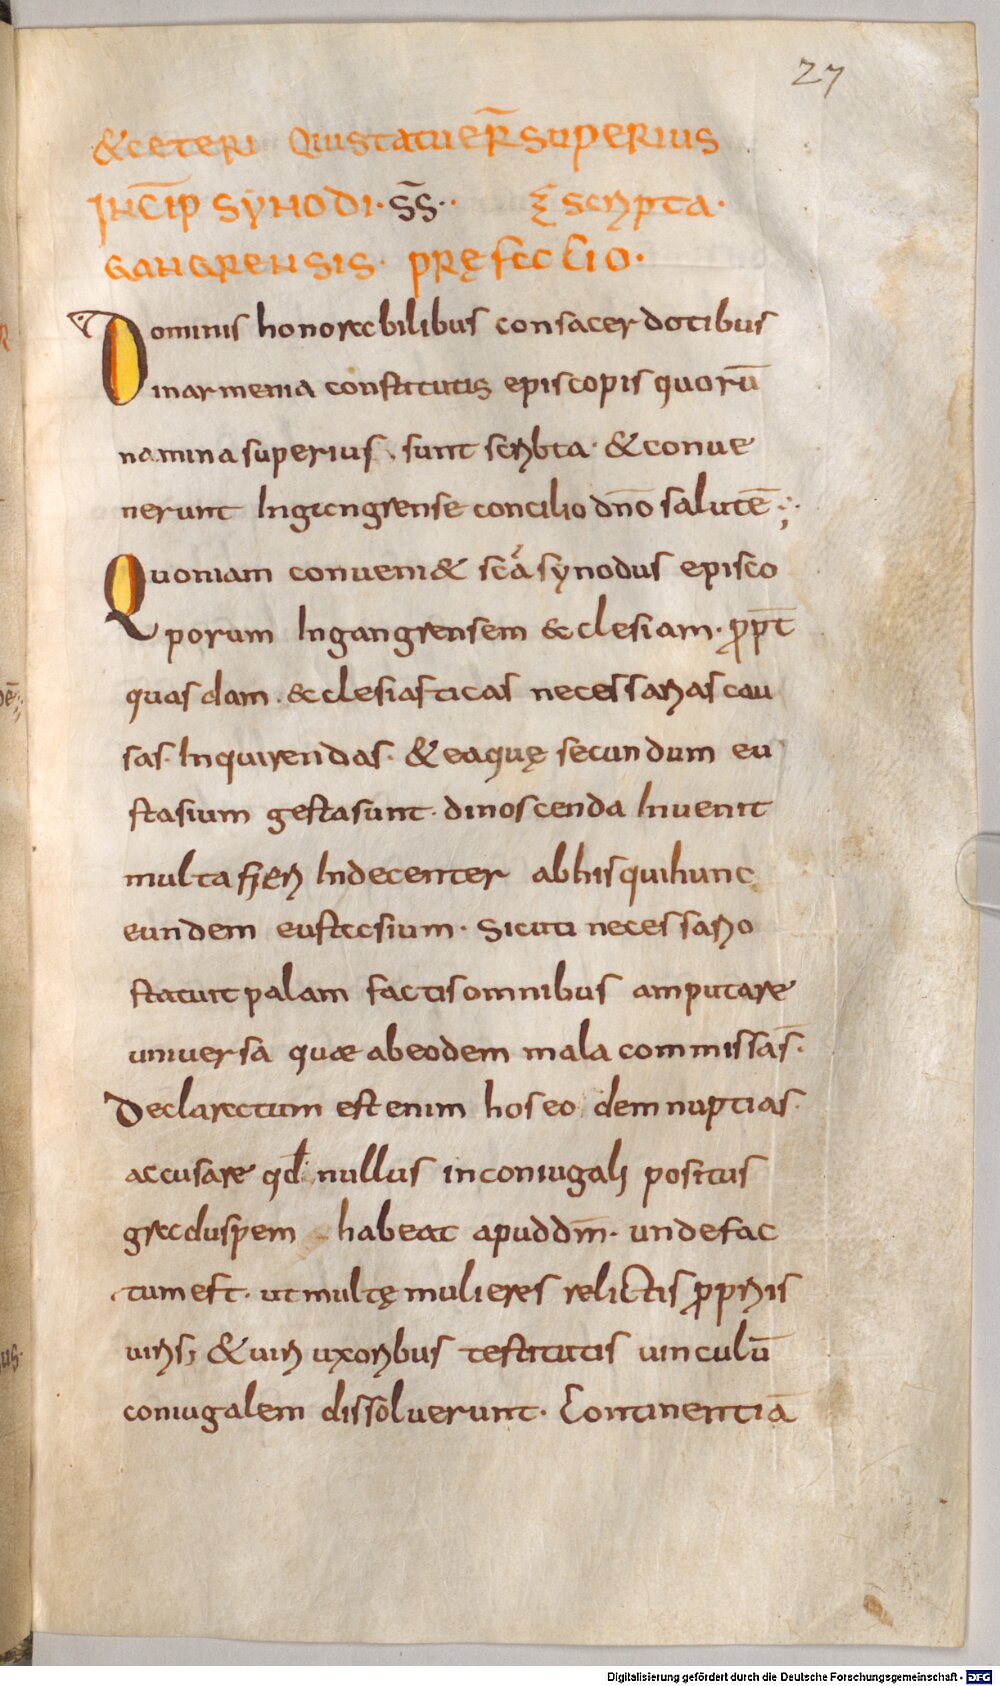 27
&ceteri quistatuer̄superius
Incip̄ synodi· s̄s̄·· scripta·
gangrensis· pręfatio·
Dominis honorabilibus consacerdotibus
inarmenia constitutis episcopis quorū
namina superius sunt scribta· &conue
nerunt Ingangrense concilio dn̄o salutē
Quoniam conueni& sc̄a synodus episco
porum Ingangrensem &clesiam· propt̄
quasdam &clesiasticas necessarias cau
sas· Inquirendas· &eaquę secundum eu
stasium gestasunt· dinoscenda Inuenit
multa fieri Indecenter abhisquihunc
eundem eustasium· Sicuti necessario
statuit palam factisomnibus amputare
uniuersa quæ abeodem mala commissas̄·
Declaratum est enim hos eo dem nuptias·
accusare qđ nullus inconiugali positus
graduspem habeat apuddm̄· undefac
tumest· utmultę mulieres relictis propriis
uiris; &uiri uxoribus testitutis uinculū
coniugalem dissoluerunt· Continentiā
Digitalisierung gefördert durch die Deutsche Forschungsgemeinschaft - DFG